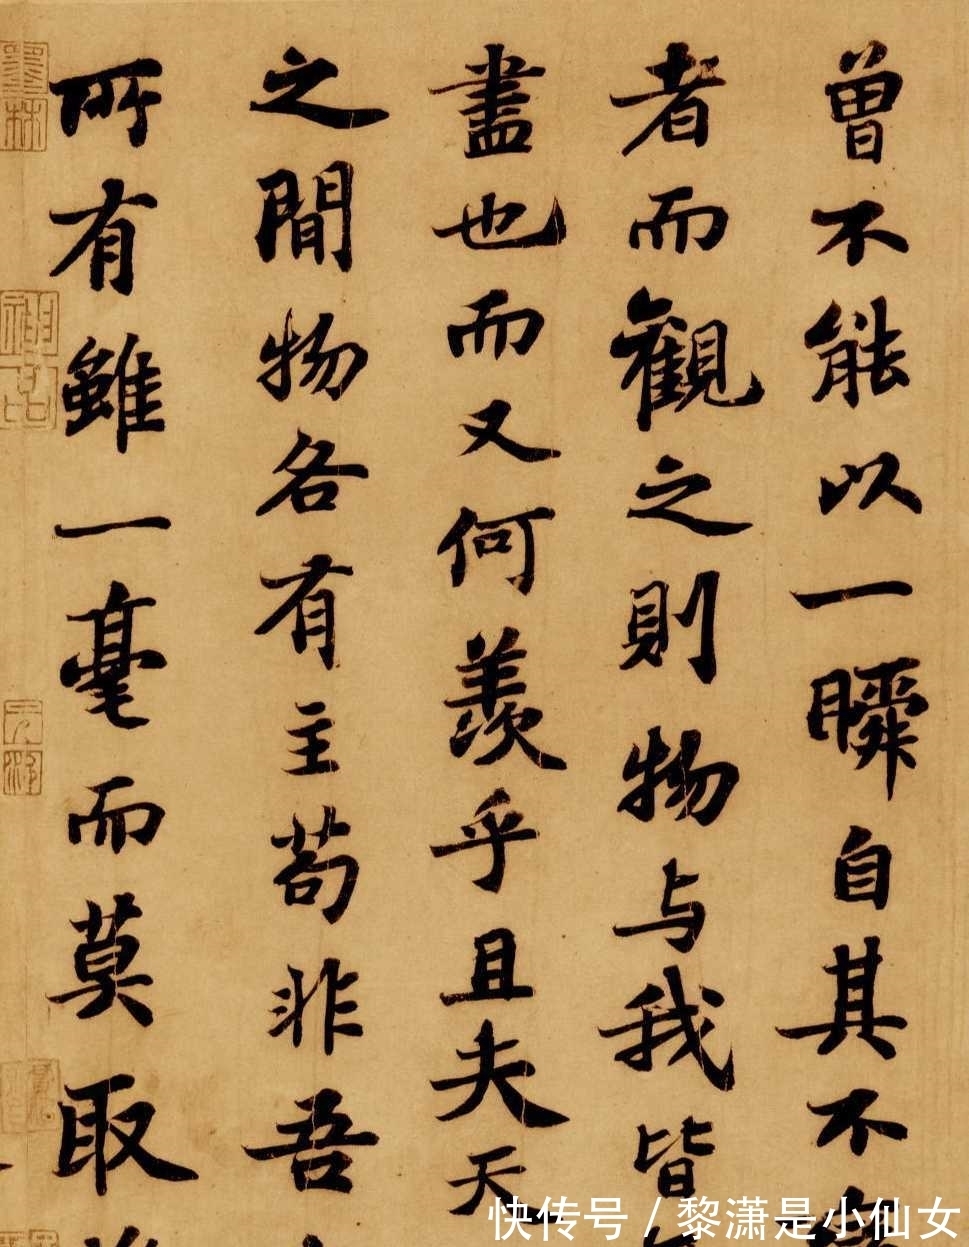 曾不能以一瞬自其不
者而觀之則物与我皆
盡也而又何羨乎且夫天
之間物各有主苟非吾
所有雖一毫而莫取
快传号/黎潇是小仙女